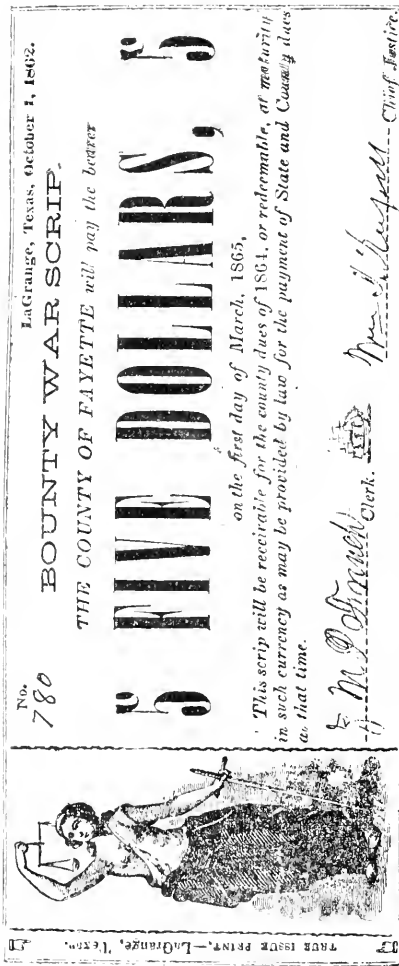 TRUE ISSUE PRINT,—LaGrange, Texas.
No.
780
LaGrange, Texas, October 1, 1862.
BOUNTY WAR SCRIP.
THE COUNTY OF FAYETTE will pay the bearer
5 FIVE DOLLARS, 5
on the first day of March, 1865,
This scrip will be receivable for the county dues of 1864, or redeemable, at maturity
in such currency as may be provided by law for the payment of State and County dues
at that time.
Clerk.
Chief Justice.